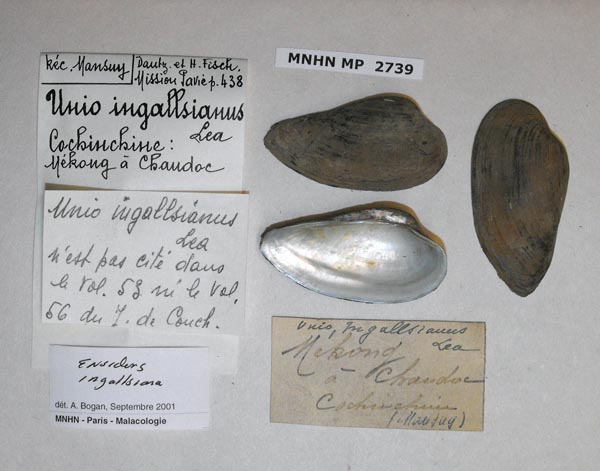 Réc. Mansuy
Dautz. et H. Fisch.
Mission Pavie p. 438
Unio ingallsianus
Lea
Cochinchine:
Mékong à Chaudoc
Unio ingallsianus
Lea
n'est pas cité dans
le vol. 53 ni le vol.
56 du J. de Conch.
Ensidens
ingallsiana
dét. A. Bogan, Septembre 2001
MNHN - Paris - Malacologie
MNHN MP 2739
Unio, Ingallsianus
Lea
Mekong
à Chaudoc
Cochinchine
(Mansuy)